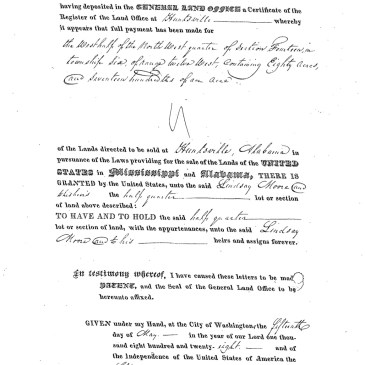 having deposited in the GENERAL LAND OFFICE a Certificate of the
Register of the Land Office at Huntsville whereby
it appears that full payment has been made for
the West half of the North West quarter of Section Fourteen, in
township six, of range twelve West, containing Eighty Acres,
and seventeen hundredths of an acre
of the Lands directed to be sold at Huntsville, Alabama in
pursuance of the Laws providing for the sale of the Lands of the UNITED
STATES in Mississippi and Alabama, THERE IS
GRANTED by the United States, unto the said Lindsay Moore and
the half quarter lot or section
of land above described:
TO HAVE AND TO HOLD the said half quarter
lot or section of land, with the appurtenances, unto the said Lindsay
Moore and to his heirs and assigns forever.
In testimony whereof, I have caused these letters to be mad
PATENT, and the Seal of the General Land Office to be
hereunto affixed.
GIVEN under my Hand, at the City of Washington, the fifteenth
day of May in the year of our Lord one thou-
sand eight hundred and twenty-eight and of
the Independence of the United States of America the